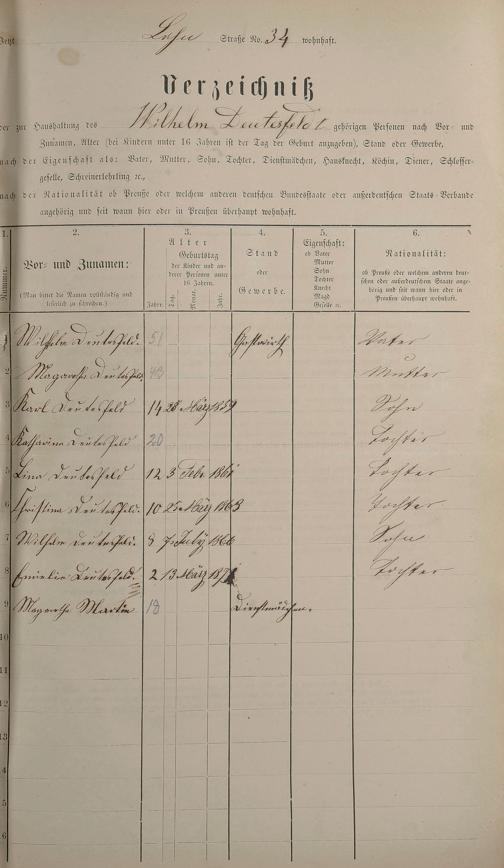 Jetzt Lahn Straße No. 34 wohnhaft.
Verzeichniß
der zur Haushaltung des Wilhelm Deutesfeldt gehörigen Personen nach Vor- und
Zunamen, Alter (bei Kindern unter 16 Jahren ist der Tag der Geburt anzugeben), Stand oder Gewerbe,
nach der Eigenschaft als: Vater, Mutter, Sohn, Tochter, Dienstmädchen, Hausknecht, Köchin, Diener, Schlosser-
geselle, Schreinerlehrling ꝛc.,
nach der Nationalität ob Preuße oder welchem anderen deutschen Bundesstaate oder außerdeutschen Staats-Verbande
angehörig und seit wann hier oder in Preußen überhaupt wohnhaft.
1. 2. 3. 4. 5. 6.
Nummer.
Vor- und Zunamen:
(Man bittet die Namen vollständig und
leserlich zu schreiben.)
Alter
Geburtstag
der Kinder und an-
derer Personen unter
16 Jahren.
Jahre. Tag. Monat. Jahr.
Stand
oder
Gewerbe.
Eigenschaft:
ob Vater
Mutter
Sohn
Tochter
Knecht
Magd
Geselle ꝛc.
Nationalität:
ob Preuße oder welchem anderen deut-
schen oder außerdeutschen Staate ange-
hörig und seit wann hier oder in
Preußen überhaupt wohnhaft.
1 Wilhelm Deutesfeld. 51 Gastwirth Vater
2 Magaretha Deutesfeld. 43 Mutter
3 Karl Deutesfeld 14 28 März 1859 Sohn
4 Katharina Deutesfeld 20 Tochter
5 Lina Deutesfeld 12 3 Febr. 1861 Tochter
6 Christina Deutesfeld. 10 25 März 1863 Tochter
7 Wilhelm Deutesfeld. 8 7 July 1866 Sohn
8 Emielie Deutesfeld. 2 13 März 1871 Tochter
9 Magaretha Martin 18 Dienstmädchen.
10
11
12
13
14
15
16